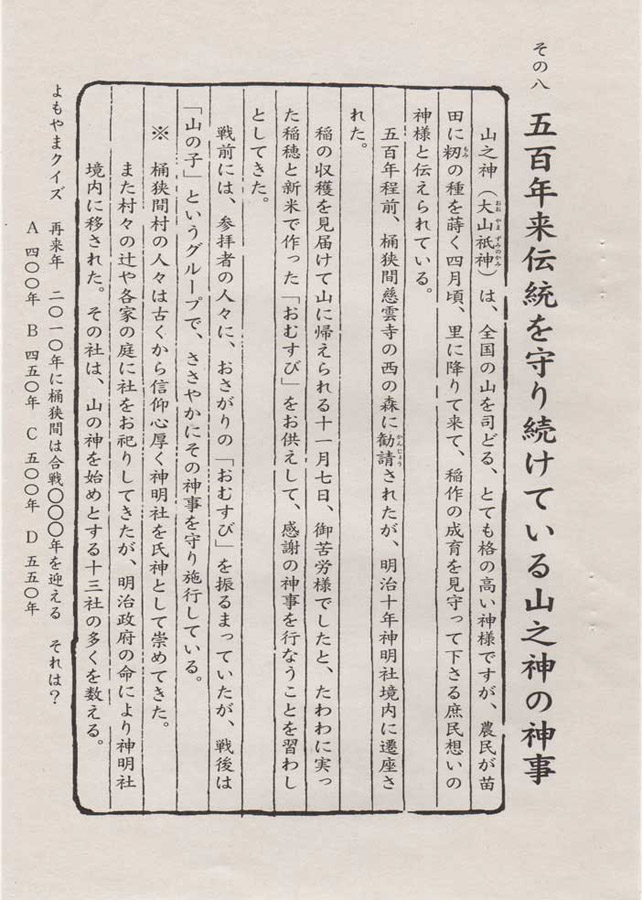 その八　五百年来伝統を守り続けている山之神の神事
山之神（大山祇神）は、全国の山を司どる、とても格の高い神様ですが、農民が苗
田に籾の種を蒔く四月頃、里に降りて来て、稲作の成育を見守って下さる庶民想いの
神様と伝えられている。
五百年程前、桶狭間慈雲寺の西の森に勧請されたが、明治十年神明社境内に遷座さ
れた。
稲の収穫を見届けて山に帰えられる十一月七日、御苦労様でしたと、たわわに実っ
た稲穂と新米で作った「おむすび」をお供えして、感謝の神事を行なうことを習わし
としてきた。
戦前には、参拝者の人々に、おさがりの「おむすび」を振るまっていたが、戦後は
「山の子」というグループで、ささやかにその神事を守り施行している。
※　桶狭間村の人々は古くから信仰心厚く神明社を氏神として崇めてきた。
また村々の辻や各家の庭に社をお祀りしてきたが、明治政府の命により神明社
境内に移された。その社は、山の神を始めとする十三社の多くを数える。
よもやまクイズ　再来年　二〇一〇年に桶狭間は合戦〇〇〇年を迎える　それは？
A 四〇〇年　B 四五〇年　C 五〇〇年　D 五五〇年